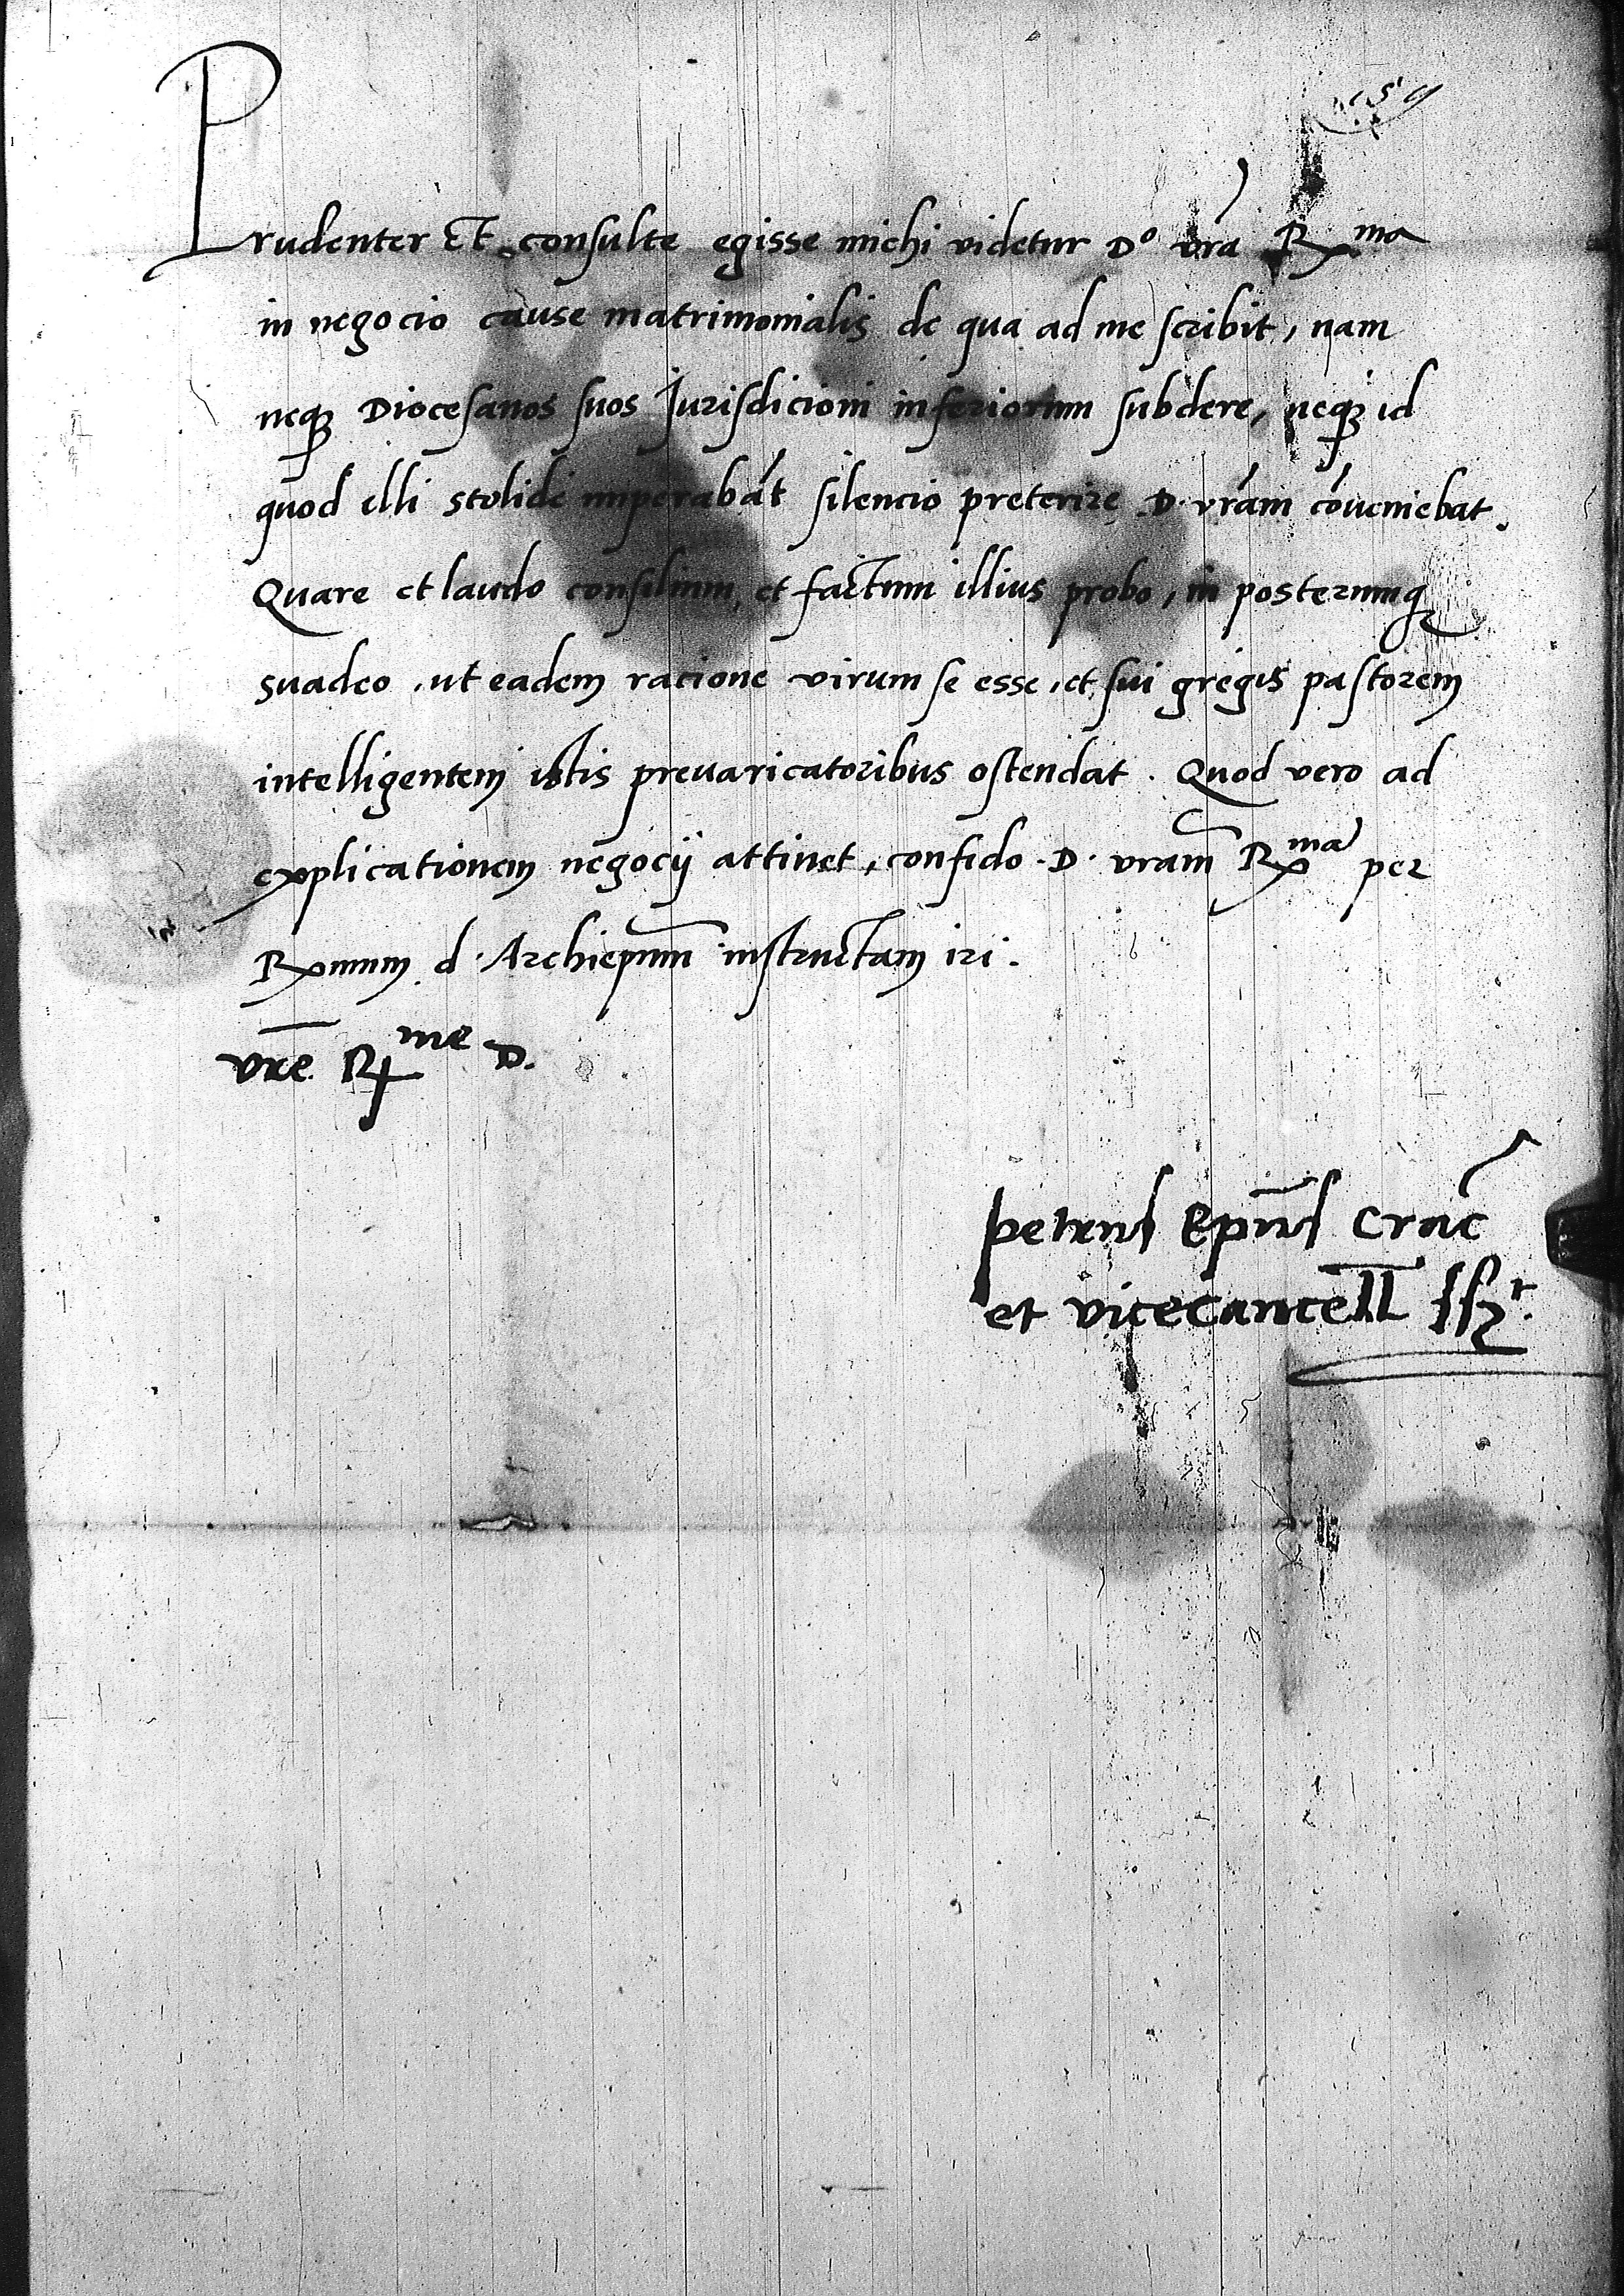 Prudenter Et consulte egisse michi videtur Do vra Rma
in negocio cause matrimonialis de qua ad me scribit, nam
neqꝫ Diocesanos suos Jurisdicioni inferiorum subdere, neqꝫ id
quod illi stolide imperabāt silencio preterire D. vram cōueniebat.
Quare et laudo consilium, et factum illius probo, in posterumqꝫ
suadeo, ut eadem racione virum se esse, et sui gregis pastorem
intelligentem istis preuaricatoribus ostendat. Quod vero ad
explicationem negocij attinet, confido .D. vram Rma per
Rmum d. Archiepum instructam iri.
vre Rme D.
petrus Epus Crac
et vicecancell